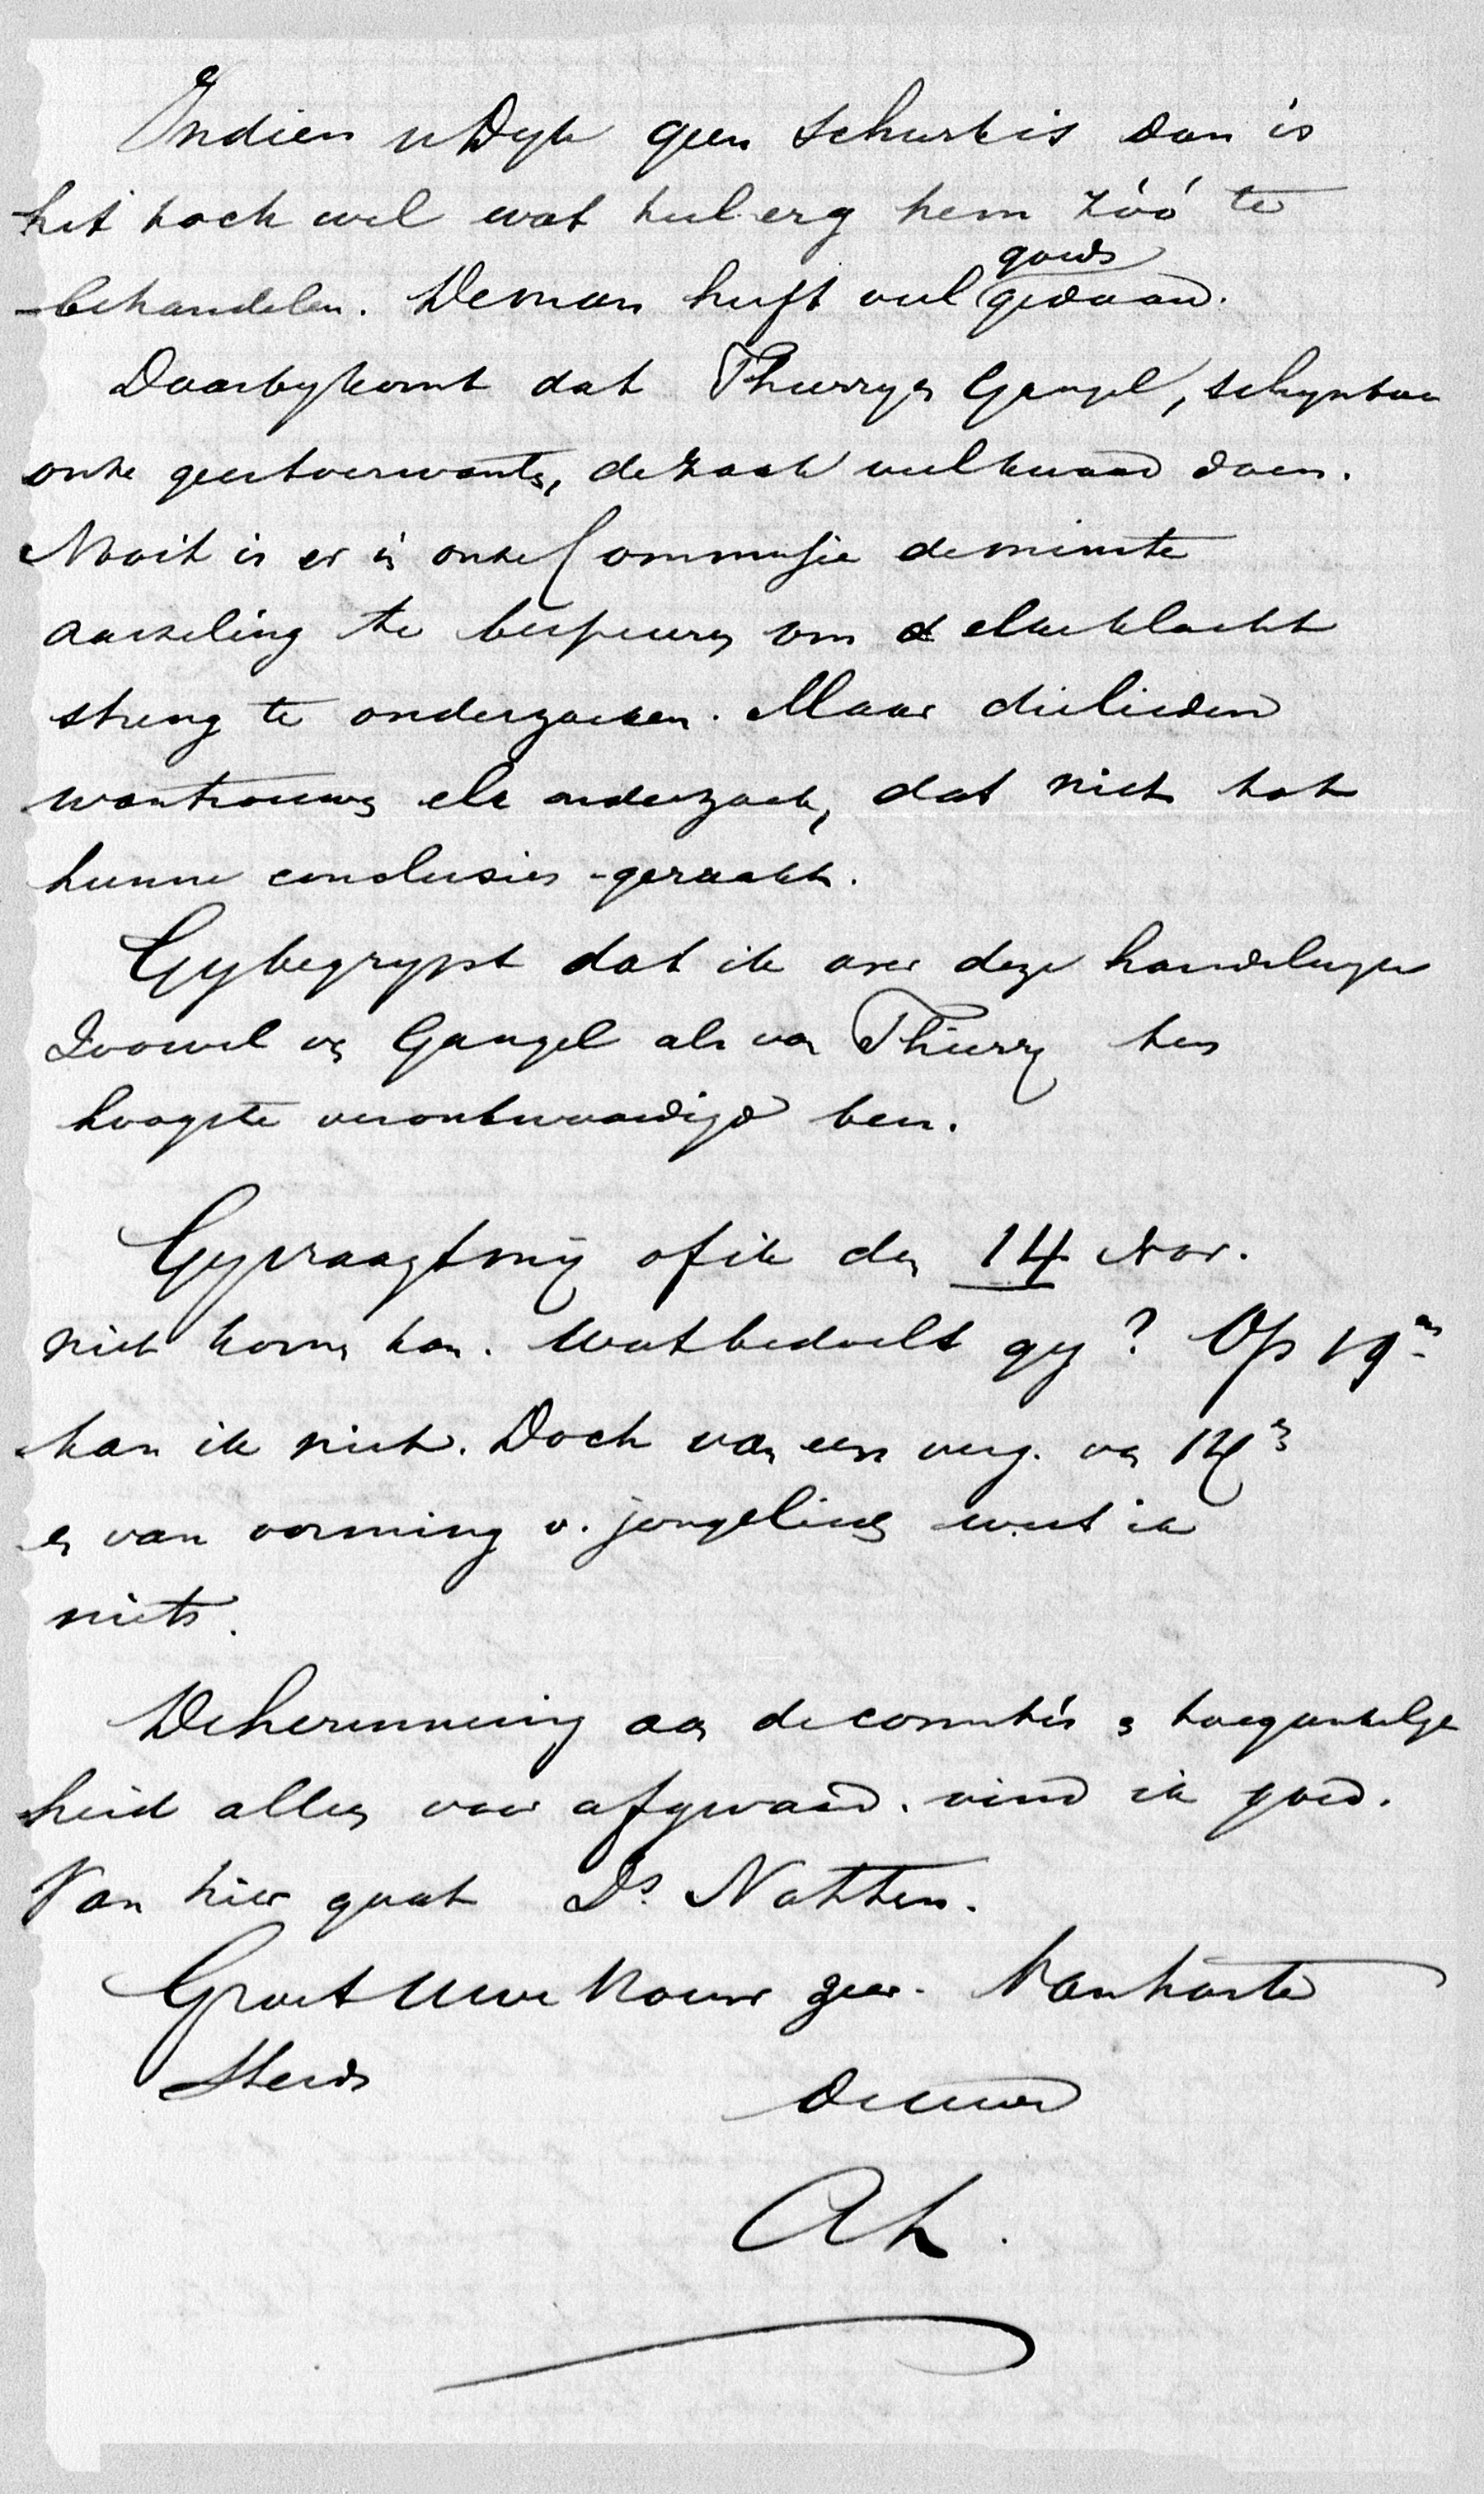 Indien v Dyk geen schurk is dan is
het toch wel wat heel erg hem zóó te
behandelen. De man heeft veel goeds gedaan.
Daarbij komt dat Thierry en Gangel, schijnbaar
onze geestverwanten, de zaak veel kwaad doen.
Nooit is er in onze Commissie de minste
aarzeling te bespeuren om elke klacht
streng te onderzoeken. Maar die lieden
wantrouwen elk onderzoek, dat niet tot
hunne conclusies geraakt.
Gy begrypt dat ik over deze handelingen
zoowel van Gangel als van Thierry ten
hoogste verontwaardigd ben.
Gy vraagt mij of ik den 14 Nov.
niet komen kan. Wat bedoelt gy? Op 19en
kan ik niet. Doch van een verg. van 14en
en van vorming v. jongelieden weet ik
niets.
De herinnering aan de comité's toegankelyk
heid alleen voor afgevaard. vind ik goed.
Van hier gaat Ds. Natten.
Groet Uwe Vrouw zeer. Van harte
Steeds
de uwe